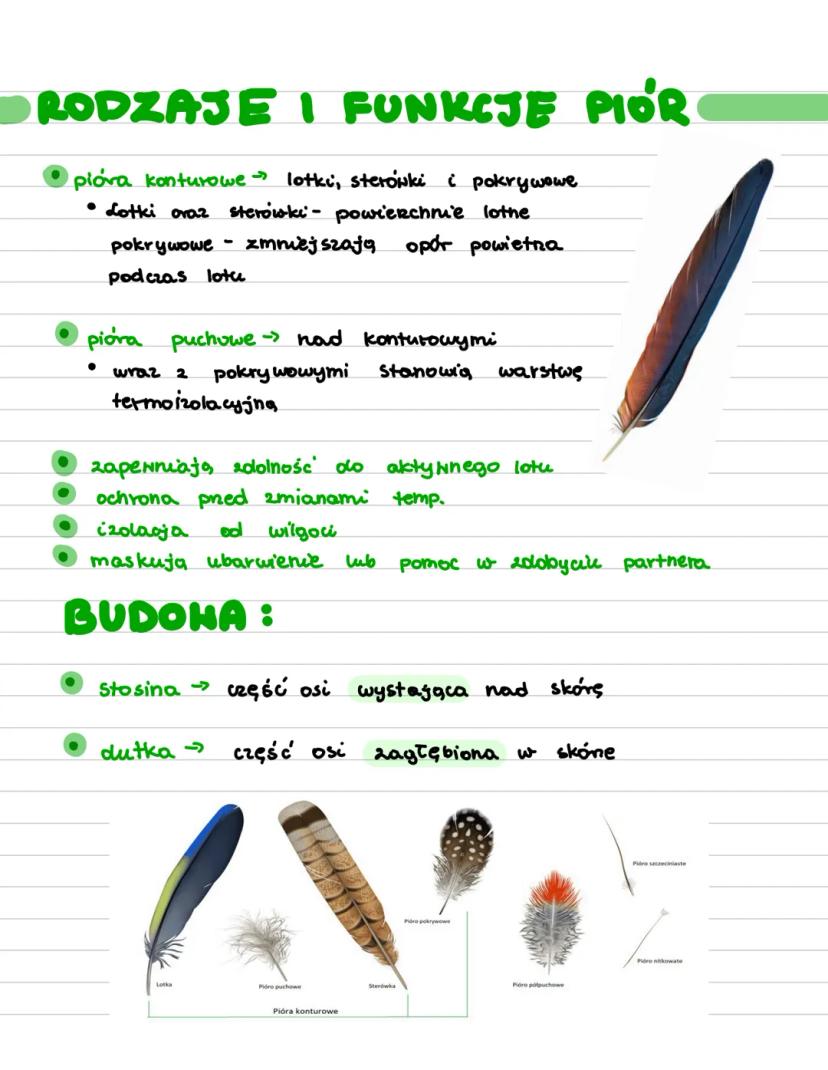 RODZAJE I FUNKCJE PIÓR
pióra konturowe → lotki, sterówki i pokrywowe
• Lotki oraz sterówki - powierzchnie lotne
pokrywowe - zmniejszają opór powietrza
podczas lotu
pióra puchowe → nad konturowymi
• wraz z pokrywowymi stanowią warstwę
termoizolacyjną
zapewniają zdolność do aktywnego lotu
ochrona przed zmianami temp.
izolacja od wilgoci
maskują ubarwienie lub pomoc w zdobyciu partnera
BUDOWA:
stosina → część osi wystająca nad skórę
dutka → część osi zagłębiona w skórze
Pióro szczeciniaste
Pióro pokrywowe
Pióro nitkowate
Lotka
Pióro puchowe
Sterówka
Pióro półpuchowe
Pióra konturowe